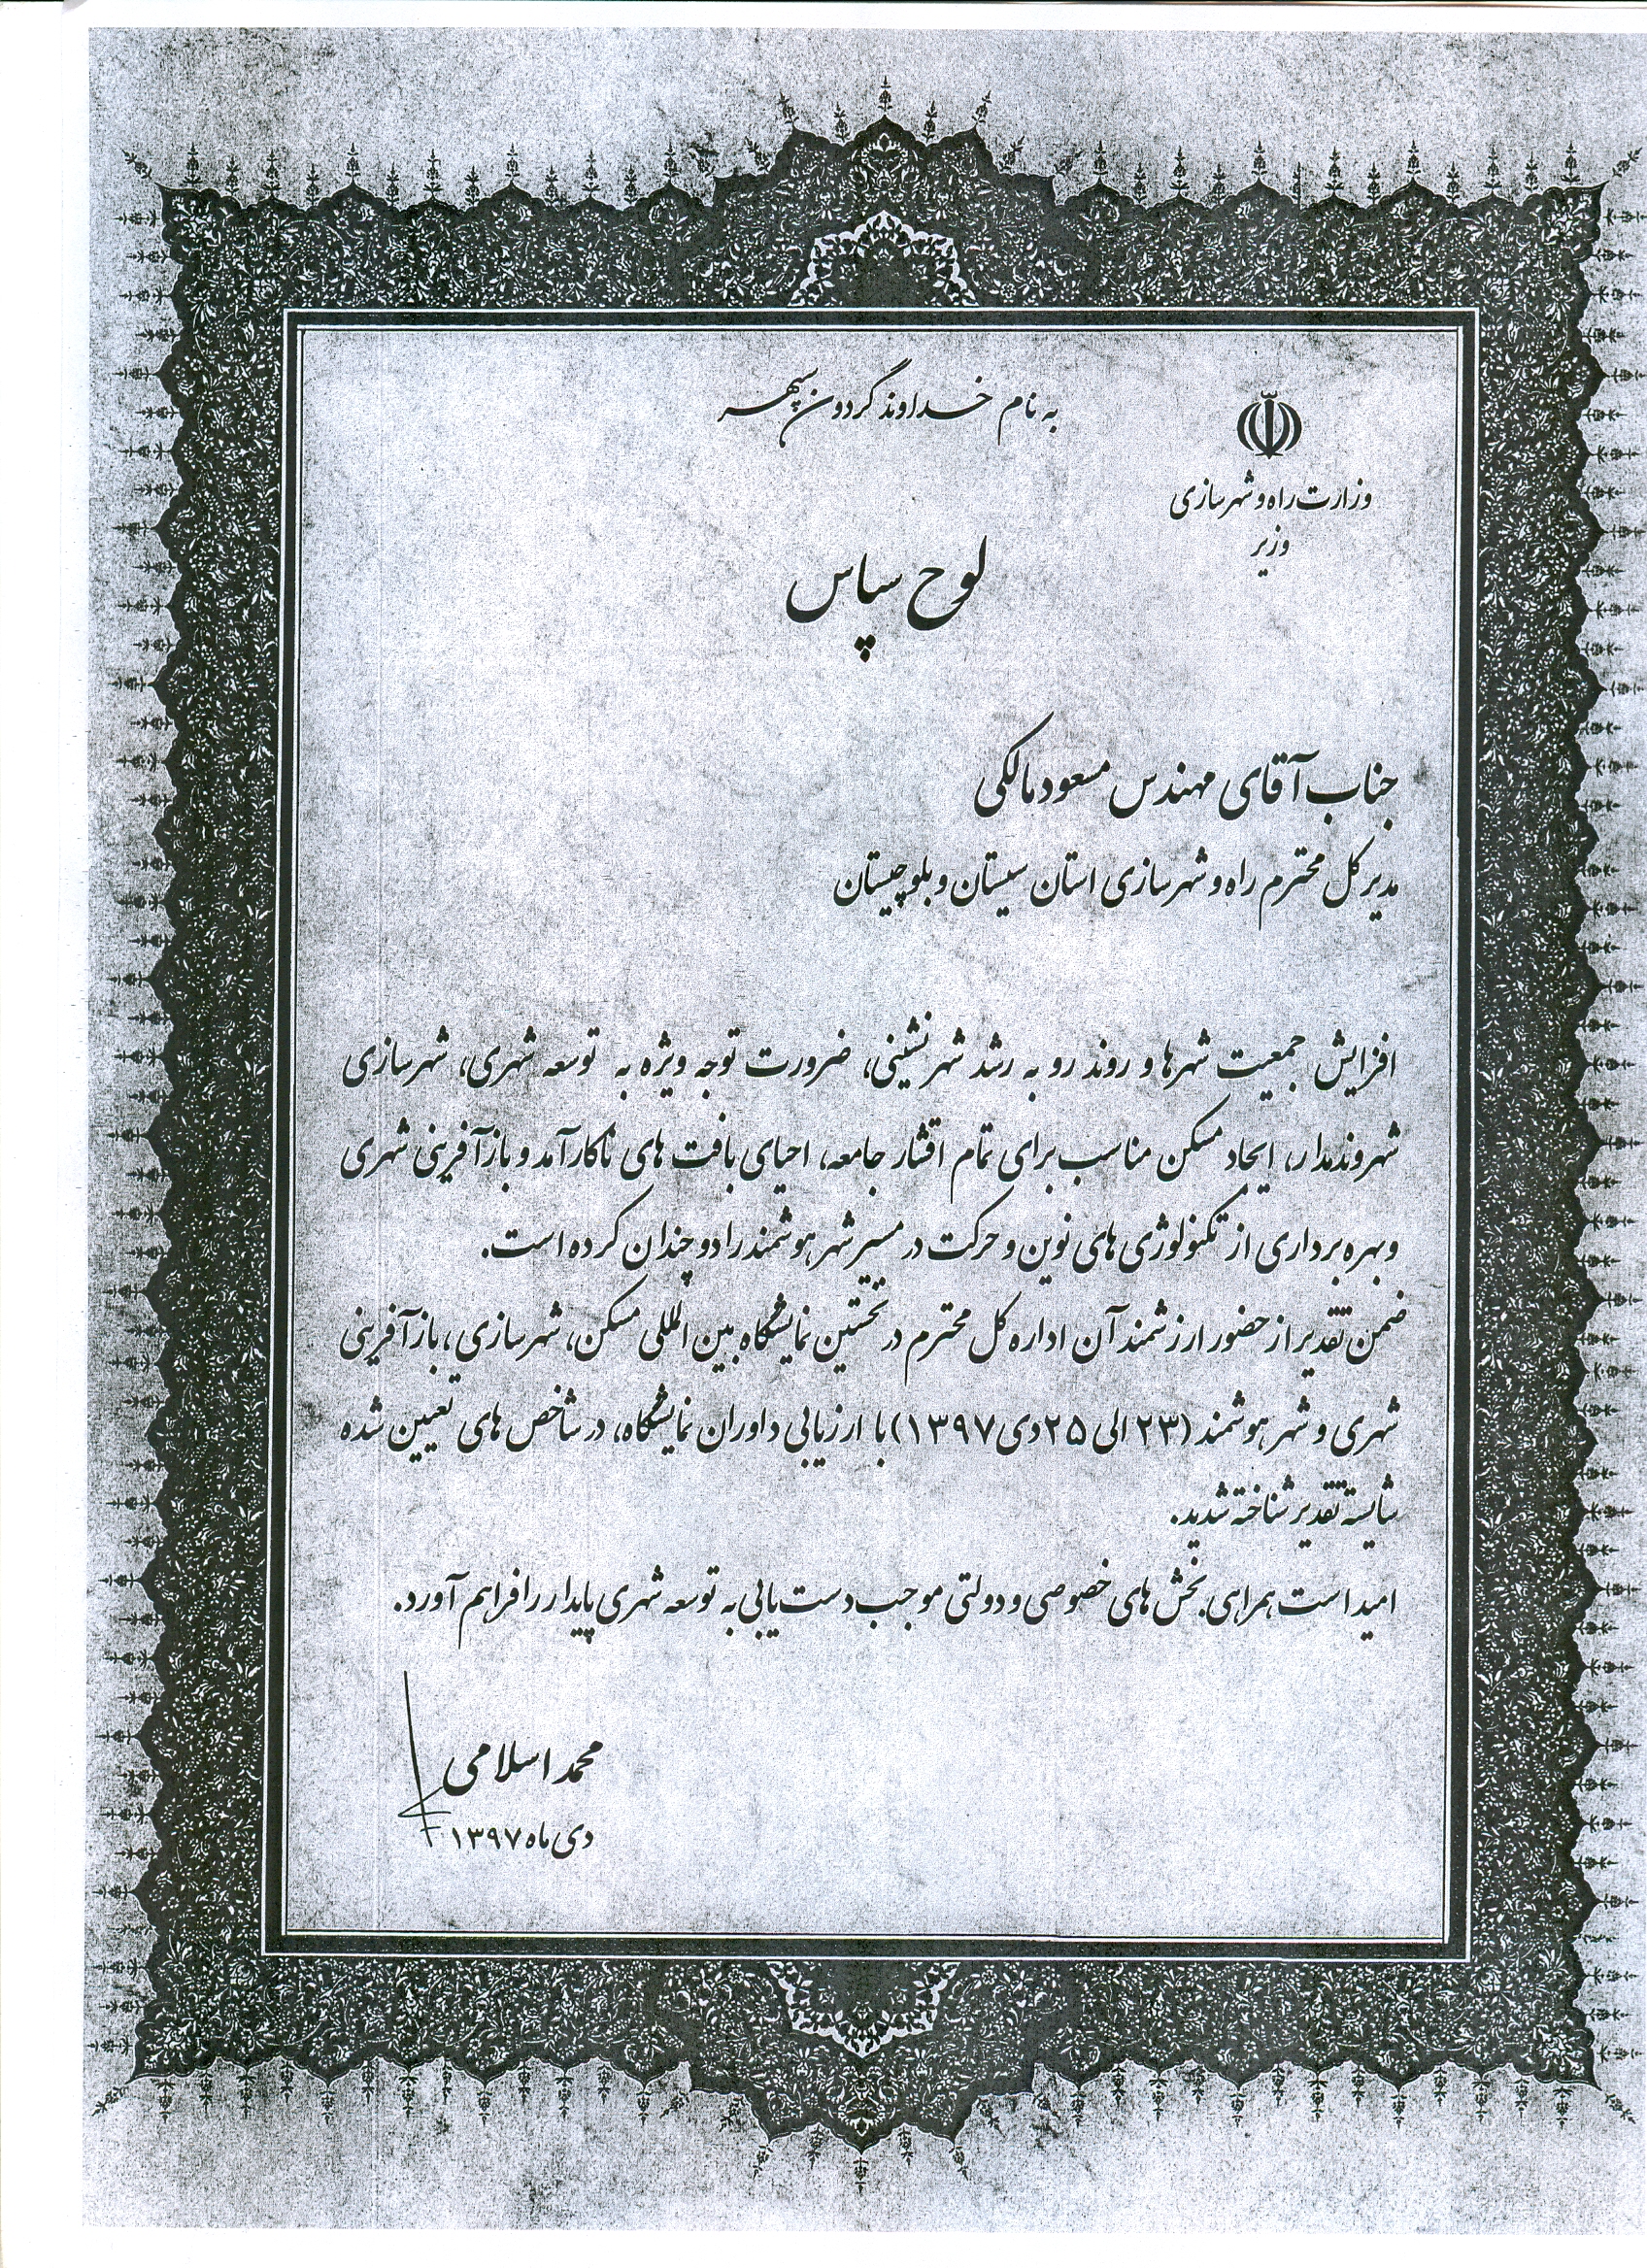 به نام خداوند گردون سپهر
وزارت راه و شهرسازی
وزیر
لوح سپاس
جناب آقای مهندس مسعود مالکی
مدیر کل محترم راه و شهرسازی استان سیستان و بلوچستان
افزایش جمعیت شهرها و روند رو به رشد شهرنشینی، ضرورت توجه ویژه به توسعه شهری، شهرسازی
شهروندمدار، ایجاد مسکن مناسب برای تمام اقشار جامعه، احیای بافت های ناکارآمد و بازآفرینی شهری
و بهره برداری از تکنولوژی های نوین و حرکت در مسیر شهر هوشمند را دو چندان کرده است.
ضمن تقدیر از حضور ارزشمند آن اداره کل محترم در نخستین نمایشگاه بین المللی مسکن، شهرسازی، بازآفرینی
شهری و شهر هوشمند (۲۳ الی ۲۵ دی ۱۳۹۷) با ارزیابی داوران نمایشگاه، در شاخص های تعیین شده
شایسته تقدیر شناخته شدید.
امید است همراهی بخش های خصوصی و دولتی موجب دست یابی به توسعه شهری پایدار را فراهم آورد.
محمد اسلامی
دی ماه ۱۳۹۷